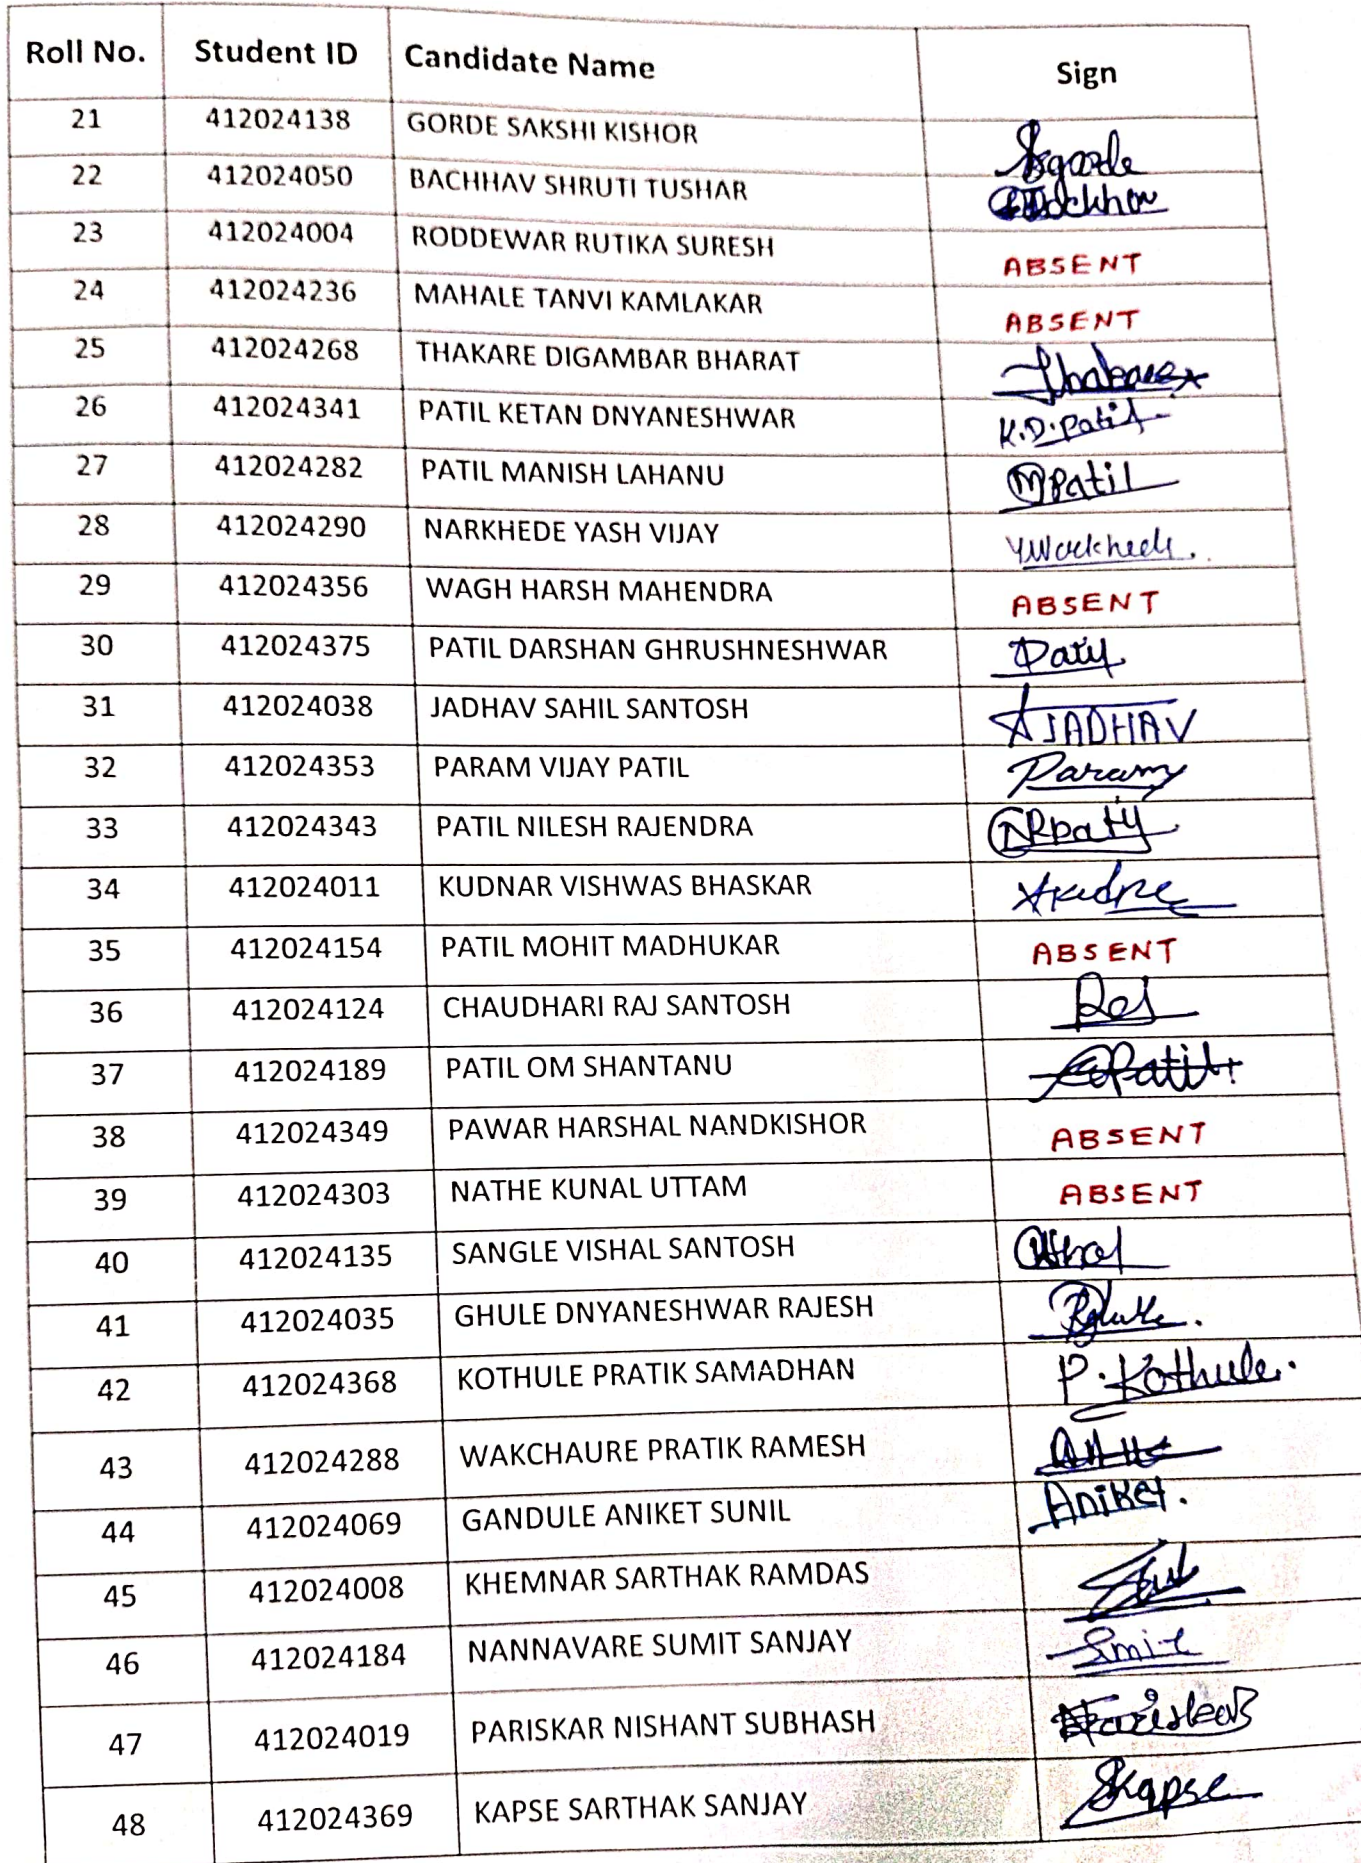 Roll No. Student ID Candidate Name Sign
21 412024138 GORDE SAKSHI KISHOR Sgorde
22 412024050 BACHHAV SHRUTI TUSHAR
23 412024004 RODDEWAR RUTIKA SURESH ABSENT
24 412024236 MAHALE TANVI KAMLAKAR ABSENT
25 412024268 THAKARE DIGAMBAR BHARAT Thakare
26 412024341 PATIL KETAN DNYANESHWAR K.D.Patil
27 412024282 PATIL MANISH LAHANU MPatil
28 412024290 NARKHEDE YASH VIJAY
29 412024356 WAGH HARSH MAHENDRA ABSENT
30 412024375 PATIL DARSHAN GHRUSHNESHWAR
31 412024038 JADHAV SAHIL SANTOSH JADHAV
32 412024353 PARAM VIJAY PATIL Param
33 412024343 PATIL NILESH RAJENDRA
34 412024011 KUDNAR VISHWAS BHASKAR
35 412024154 PATIL MOHIT MADHUKAR ABSENT
36 412024124 CHAUDHARI RAJ SANTOSH Raj
37 412024189 PATIL OM SHANTANU Patil
38 412024349 PAWAR HARSHAL NANDKISHOR ABSENT
39 412024303 NATHE KUNAL UTTAM ABSENT
40 412024135 SANGLE VISHAL SANTOSH
41 412024035 GHULE DNYANESHWAR RAJESH
42 412024368 KOTHULE PRATIK SAMADHAN P. Kothule.
43 412024288 WAKCHAURE PRATIK RAMESH
44 412024069 GANDULE ANIKET SUNIL Aniket.
45 412024008 KHEMNAR SARTHAK RAMDAS
46 412024184 NANNAVARE SUMIT SANJAY Smit
47 412024019 PARISKAR NISHANT SUBHASH
48 412024369 KAPSE SARTHAK SANJAY SKapse